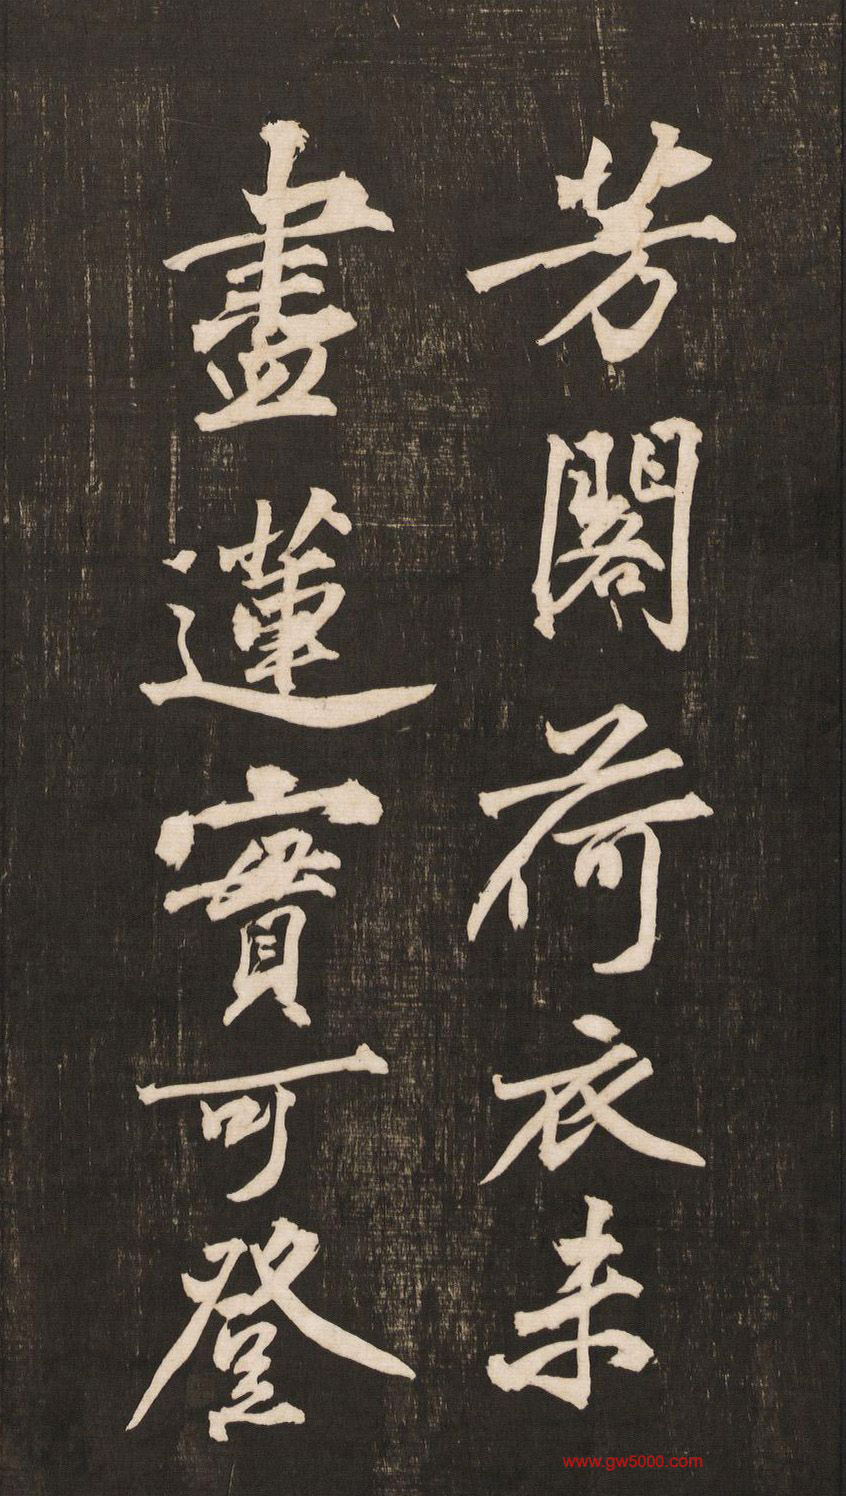 芳閣荷衣未
盡蓮實可登
www.gw5000.com